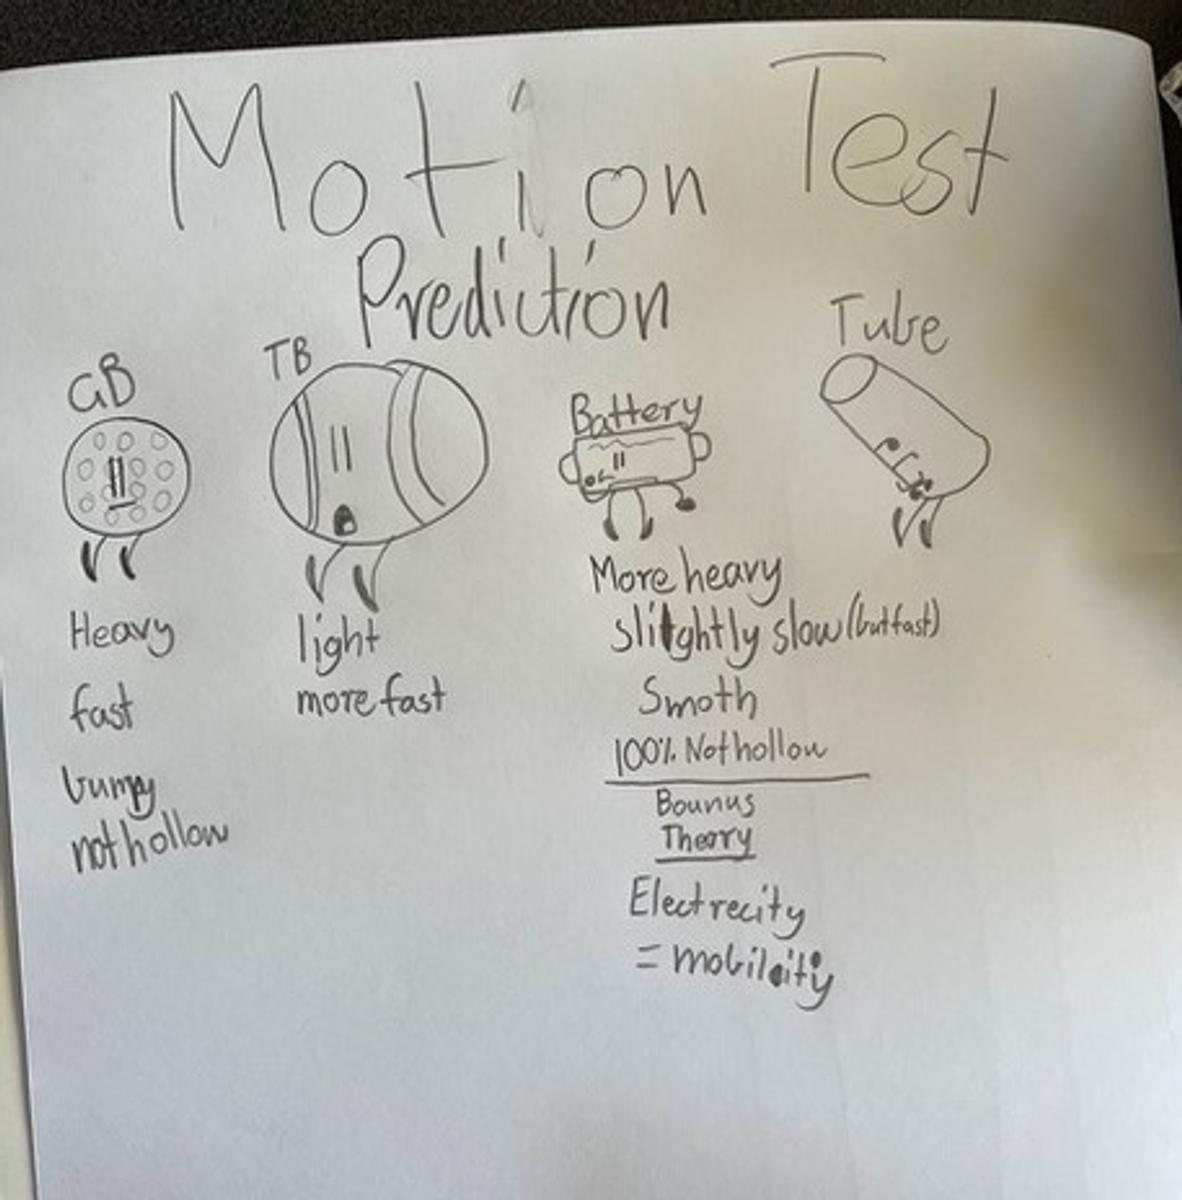 Motion Test
Prediction
GB
TB
Battery
Tube
Heavy
fast
bumpy
not hollow
light
more fast
More heavy
slitghtly slow (but fast)
Smoth
100% Not hollow
Bounus
Theory
Electrecity
= mobilcity